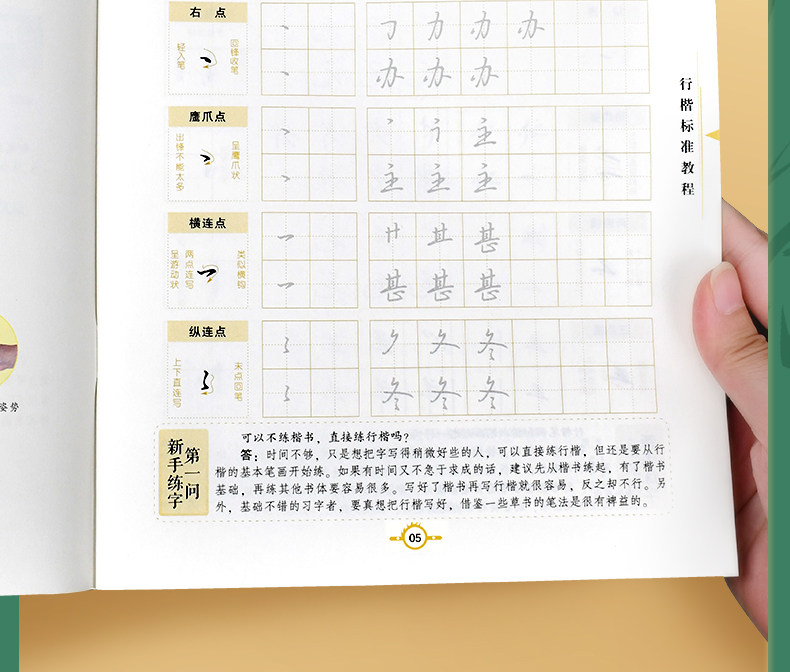 右 点
轻入笔
回锋收笔
力 办 办
办 办 办
鹰爪点
出锋不能太多
呈鹰爪状
主
主 主 主
横连点
两点连写
类似横钩
甚
甚 甚 甚
纵连点
上下直连写
末点回笔
夂 冬
冬 冬 冬
行楷标准教程
姿势
新手练字
第一问
可以不练楷书，直接练行楷吗？
答：时间不够，只是想把字写得稍微好些的人，可以直接练行楷，但还是要从行
楷的基本笔画开始练。如果有时间又不急于求成的话，建议先从楷书练起，有了楷书
基础，再练其他书体要容易很多。写好了楷书再写行楷就很容易，反之却不行。另
外，基础不错的习字者，要真想把行楷写好，借鉴一些草书的笔法是很有裨益的。
05